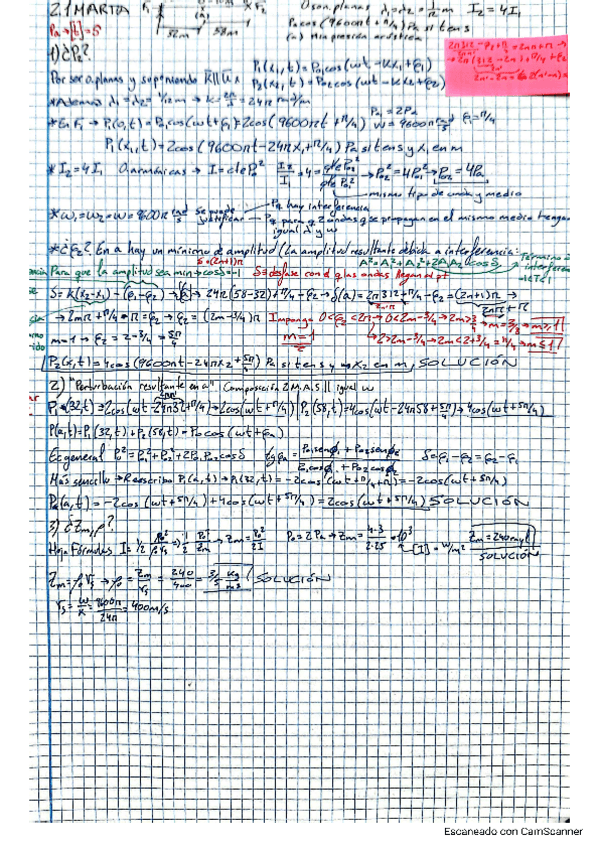 2.1 MARTA F1 F2 O son planas λ1=λ2=1/12 m I2=4I1
Pa→[t]=s 32m 58m P0 cos(9600πt+π/4) Pa si t en s
(a) Min presión acústica
1) ¿P2?
Por ser o.planas y suponiendo K⃗ || u⃗x P1(x1,t)=P01cos(ωt-kx1+φ1)
P2(x2,t)=P02cos(ωt-kx2+φ2)
*Además λ1=λ2=1/12m → k=2π/λ=24π rad/m
*En F1 → P1(0,t)=P01cos(ωt+φ1)=2cos(9600πt+π/4) P01=2Pa ω=9600π rad/s φ1=π/4
P1(x1,t)=2cos(9600πt-24πx1+π/4) Pa si t en s y x1 en m
*I2=4I1 O armónicas → I=cteP0² I2/I1=4=cteP02²/cteP01² → P02²=4P01² → P02=4Pa
mismo tipo de onda y medio
*ω1=ω2=ω=9600π rad/s Se puede justificar Pq hay interferencia
Pq para q 2 ondas q se propagan en el mismo medio tengan igual λ y ω
*¿φ2? En a hay un mínimo de amplitud (La amplitud resultante debida a interferencia:
δ=(2n+1)π A²=A1²+A2²+2A1A2cosδ Término de interferencia
Para que la amplitud sea min→cosδ=-1 δ=desfase con el q las ondas llegan al pt =cte
δ=K(x2-x1)-(φ2-φ1) → 24π(58-32)+π/4-φ2→δ(a)=2π312+π/4-φ2=(2n+1)π →
→2mπ+π/4-π=φ2→φ2=(2m-3/4)π Impongo 0<φ2<2π→0<2m-3/4→2m>3/4→m>3/8→m≥1
m=1 → φ2=2-3/4=5π/4 m=1 2>2m-3/4→2m<2+3/4=11/4→m≤1
P2(x2,t)=4cos(9600πt-24πx2+5π/4) Pa si t en s y x2 en m, SOLUCIÓN
2) "Perturbación resultante en a": Composición 2 M.A.S || igual ω
P1(32,t)=2cos(ωt-24π32+π/4)→2cos(ωt+π/4) P2(58,t)=4cos(ωt-24π58+5π/4)→4cos(ωt+5π/4)
P(a,t)=P1(32,t)+P2(58,t)=P0cos(ωt+φa)
En general P0²=P01²+P02²+2P01P02cosδ tgφa=P01senφ1+P02senφ2/P01cosφ1+P02cosφ2 δ=φ1-φ2=φ2-φ1
Más sencillo→Reescribo P1(a,t)→P1(32,t)=-2cos(ωt+π/4+π)=-2cos(ωt+5π/4)
P(a,t)=-2cos(ωt+5π/4)+4cos(ωt+5π/4)=2cos(ωt+5π/4) SOLUCIÓN
3) ¿Zm,ρ?
Hoja Fórmulas I=1/2 P0²/ρ0vs=1/2 P0²/Zm→Zm=P0²/2I P0=2Pa→Zm=
[I]=W/m² Zm=240rayl SOLUCIÓN
Zm=ρ0vs→ρ0=Zm/vs=240/400=3/5 kg/m³ SOLUCIÓN
vs=ω/k=9600π/24π=400m/s
Escaneado con CamScanner